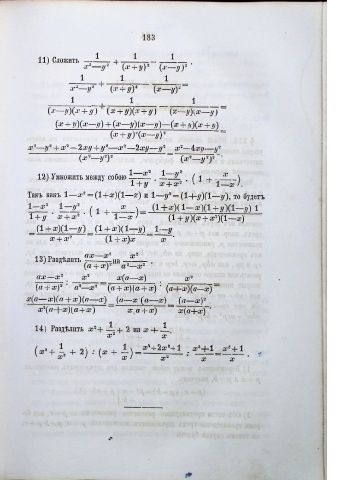 183
11) Сложить 1/(x²—y²) + 1/(x+y)² — 1/(x—y)².
1/(x²—y²) + 1/(x+y)² — 1/(x—y)² =
1/((x—y)(x+y)) + 1/((x+y)(x+y)) — 1/((x—y)(x—y)) =
((x+y)(x—y)+(x—y)(x—y)—(x+y)(x+y))/((x+y)²(x—y)²)
(x²—y²+x²—2xy+y²—x²—2xy—y²)/(x²—y²)² = (x²—4xy—y²)/(x²—y²)².
12) Умножить между собою (1—x²)/(1+y) · (1—y²)/(x+x²) · (1 + x/(1—x)).
Такъ какъ 1—x²=(1+x)(1—x) и 1—y²=(1+y)(1—y), то будетъ
(1—x²)/(1+y) · (1—y²)/(x+x²) · (1 + x/(1—x)) = ((1+x)(1—x)(1+y)(1—y) 1)/((1+y)(x+x²)(1—x))
= ((1+x)(1—y))/(x+x²) = ((1+x)(1—y))/((1+x)x) = (1—y)/x
13) Раздѣлить (ax—x²)/(a+x)² на x²/(a²—x²).
(ax—x²)/(a+x)² : x²/(a²—x²) = x(a—x)/((a+x)(a+x)) : x²/((a+x)(a—x)) =
x(a—x)(a+x)(a—x)/(x²(a+x)(a+x)) = (a—x)(a—x)/(x(a+x)) = (a—x)²/(x(a+x)).
14) Раздѣлить x²+ 1/x² + 2 на x + 1/x.
(x² + 1/x² + 2) : (x + 1/x) = (x⁴+2x²+1)/x² : (x²+1)/x = (x²+1)/x.